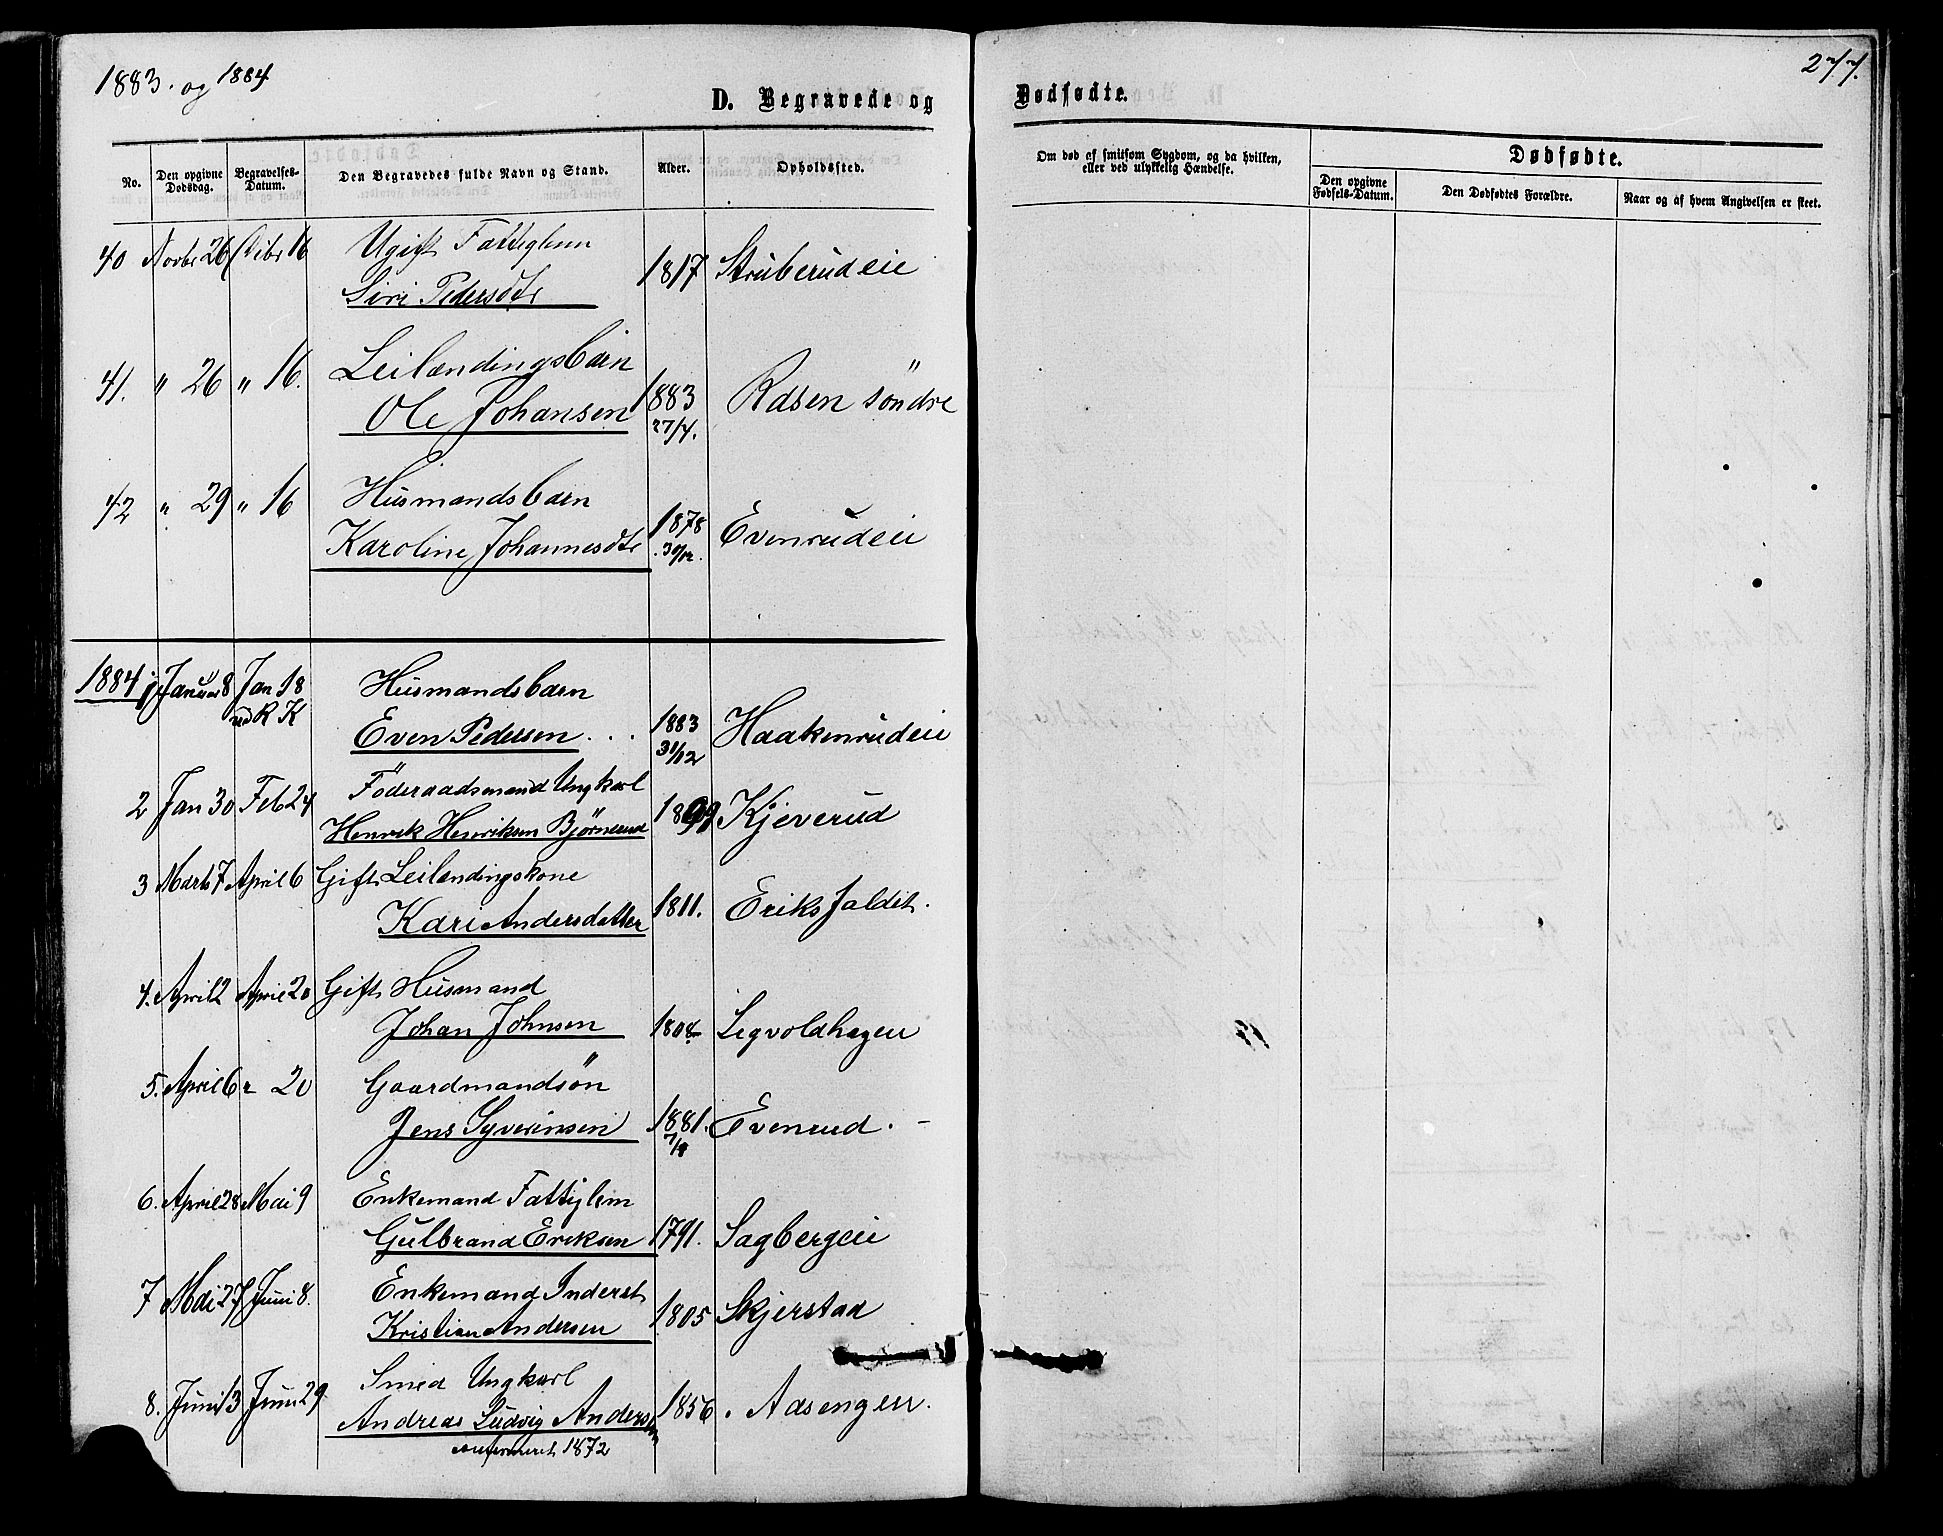 1883. og 1884
277.
D. Begravede og
Dødfødte.
No.
Den opgivne Dødsdag.
Begravelses-Datum.
Den Begravedes fulde Navn og Stand.
Alder.
Opholdssted.
Om død af smitsom Sygdom, og da hvilken, eller ved ulykkelig Hændelse.
Dødfødte.
Den opgivne Fødsels-Datum.
Den Dødfødtes Forældre.
Naar og af hvem Angivelsen er skeet.
40 Novbr 26 Debr 16 Ugift Fattiglem
Siri Pedersdtr 1817 Struberudeie
41. " 26 " 16. Leilændingsbarn
Ole Johansen 1883 Rasen söndre
27/4.
42 " 29 " 16 Husmandsbarn
Karoline Johannesdtr 1878 Evenrudeie
30/12.
1884 1 Januar 8 Jan 18 Husmandsbarn
ved R K
Even Pedersen . . . 1883 Haakenrudeie
31/12
2 Jan 30 Feb 24 Föderaadsmand Ungkarl
Henrik Henriksen Bjørnerud Kjeverud
3 Marts 7 April 6 Gift Leilendingskone
Kari Andersdatter 1811. Eriksfaldet.
4. April 2 April 20 Gift Husmand
Johan Johnsen 1804 Legvoldhagen
5. April 6 20 Gaardmandsön
Jens Syverinsen 1881. Evenrud. -
6. April 28 Mai 9 Enkemand Fattiglem
Gulbrand Eriksen 1791. Sagbergeie
7 Mai 27 Juni 8. Enkemand Inderst
Kristian Andersen 1805 Skjerstad
8. Juni 13 Juni 29 Smed Ungkarl
Andreas Ludvig Andersen 1856. Aasengen.
confirmeret 1872